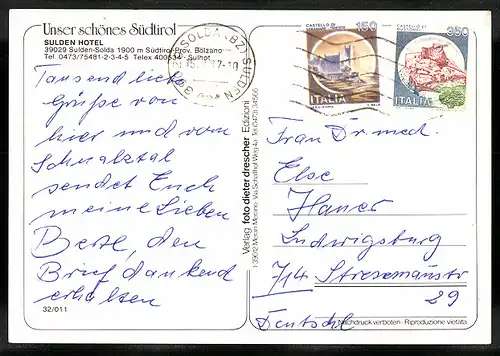 Unser schönes Südtirol
SULDEN HOTEL
39029 Sulden-Solda 1900 m Südtirol-Prov. Bolzano
Tel. 0473/75481-2-3-4-5 Telex 400634 - Sulhot
Tausend liebe
Grüße von
hier und vom
Schnalztal
sendet Euch
meine Lieben
Bertl, den
Brief dankend
erhalten
32/011
Verlag foto dieter drescher Edizioni
I 39012 Meran Merano
SOLDA (BZ) SULDEN
CASTELLO DI
150
ITALIA
CASTELLO DI
350
ITALIA
Frau Dr med.
Else
Hauer
Ludwigsburg
714 Stresemannstr
29
Deutschl
Nachdruck verboten - Riproduzione vietata